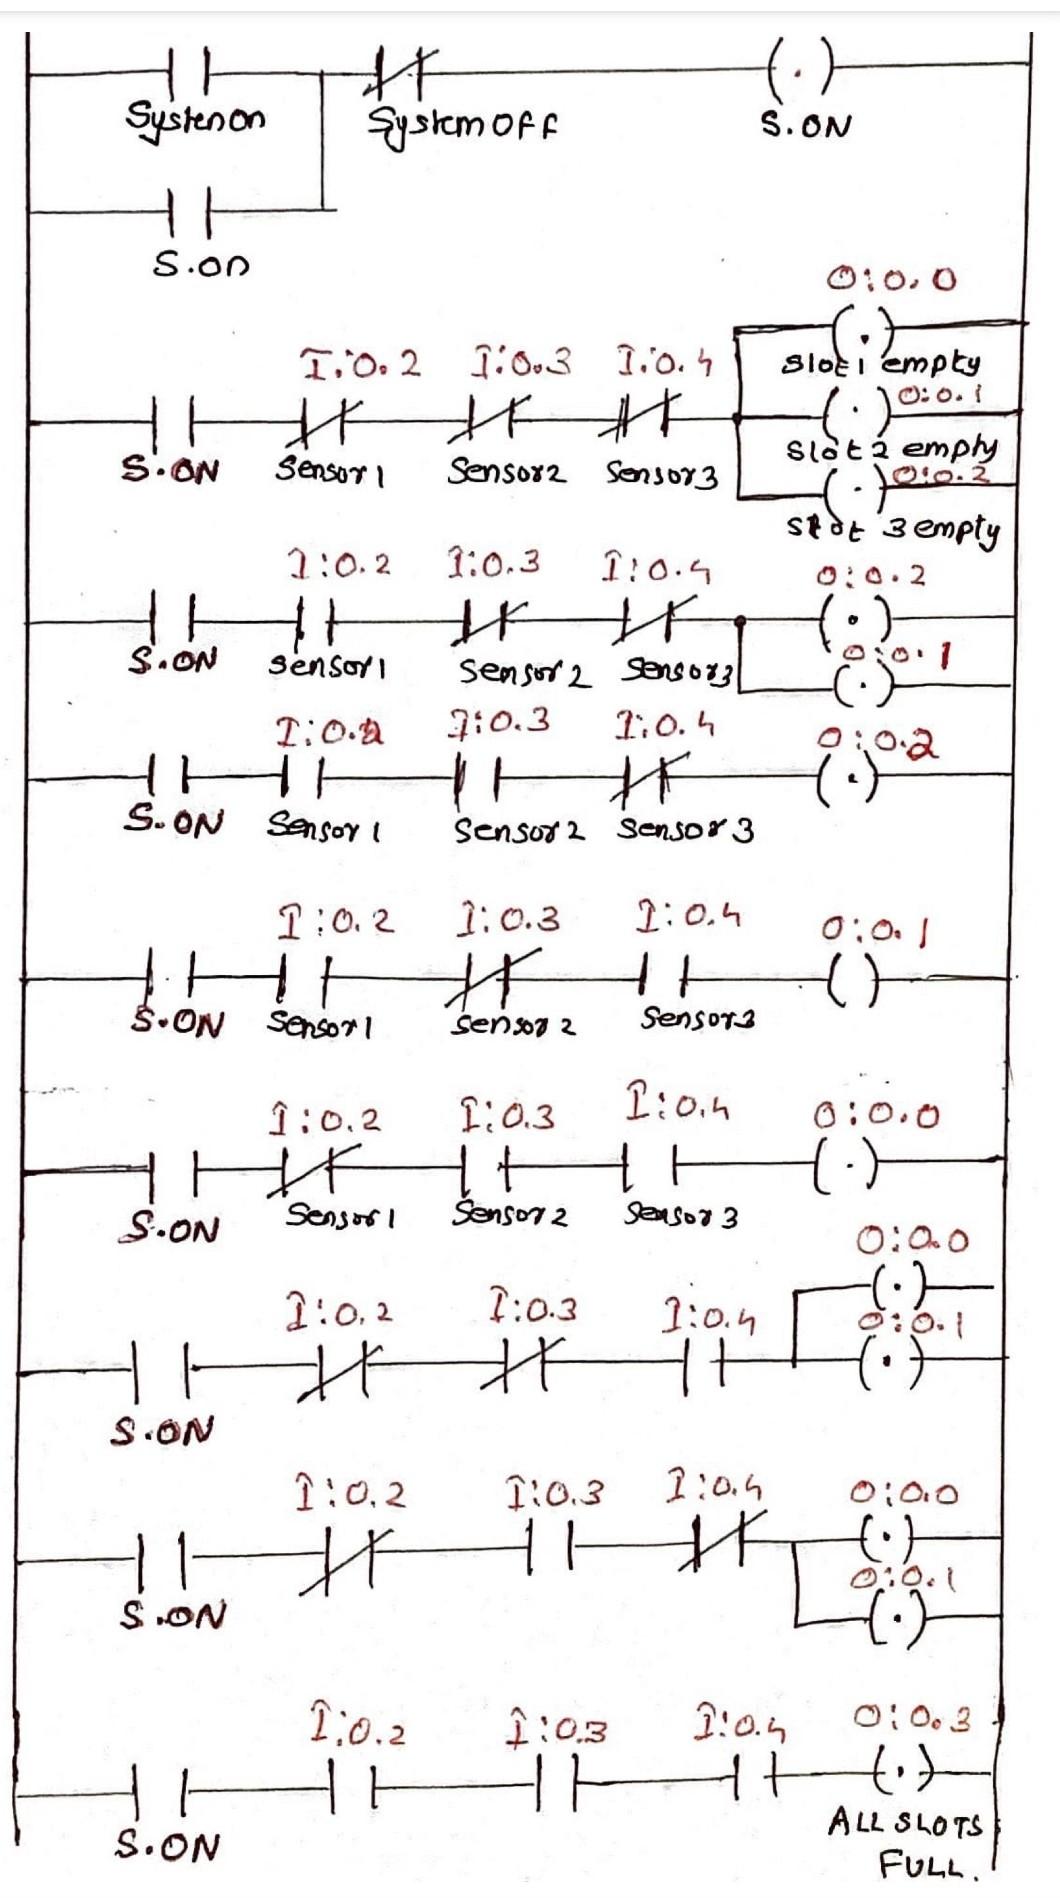 Systenon
System OFF
S.ON
S.on
O:0.0
I:0.2 I:0.3 I:0.4
Slot1 empty
O:0.1
S.ON Sensor1 Sensor2 Sensor3
Slot 2 empty
O:0.2
Slot 3 empty
I:0.2 I:0.3 I:0.4 O:0.2
S.ON Sensor1 Sensor 2 Sensor3
O:0.1
I:0.2 I:0.3 I:0.4 O:0.2
S.ON Sensor 1 Sensor 2 Sensor 3
I:0.2 I:0.3 I:0.4 O:0.1
S.ON Sensor1 Sensor 2 Sensor3
I:0.2 I:0.3 I:0.4 O:0.0
S.ON Sensor1 Sensor 2 Sensor 3
O:0.0
I:0.2 I:0.3 I:0.4 O:0.1
S.ON
I:0.2 I:0.3 I:0.4 O:0.0
O:0.1
S.ON
I:0.2 I:0.3 I:0.4 O:0.3
S.ON
ALL SLOTS
FULL.